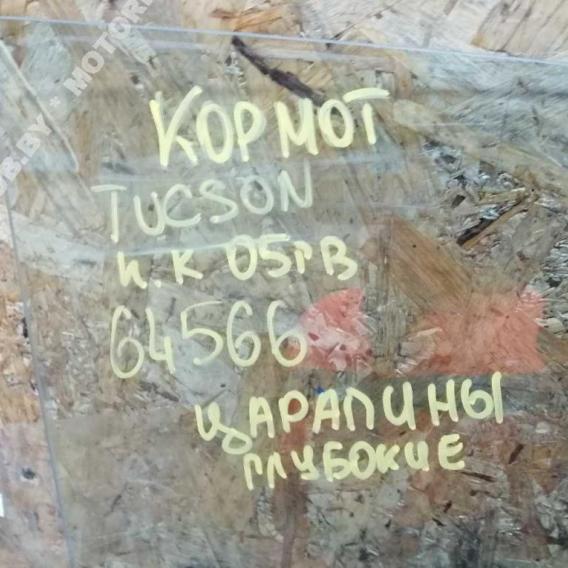 КОРМОТ
TUCSON
К.К 05ГВ
64566
ЦАРАПИНЫ
ГЛУБОКИЕ